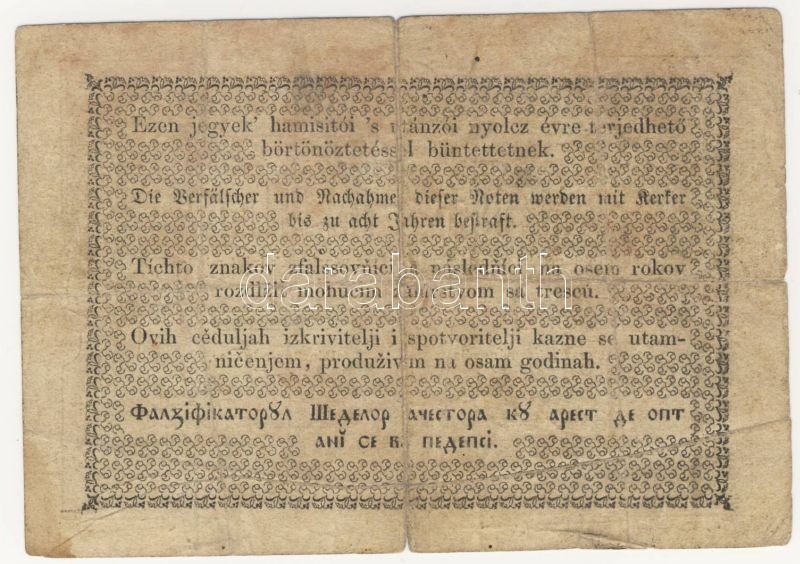 Ezen jegyek' hamisitói 's utánzói nyolcz évre terjedhető
börtönöztetéssel büntettetnek.
Die Verfälscher und Nachahmer dieser Noten werden mit Kerker
bis zu acht Jahren bestraft.
Tíchto znakov zfalšovníci a následníci na osem rokov
mohúcim sa trescú.
Ovih céduljah izkrivitelji i spotvoritelji kazne se utam-
ničenjem, produživim na osam godinah.
Фалціфікаторȣл Шеделор ачестора кȣ арест де опт
анĭ се педепсі.
darabanth